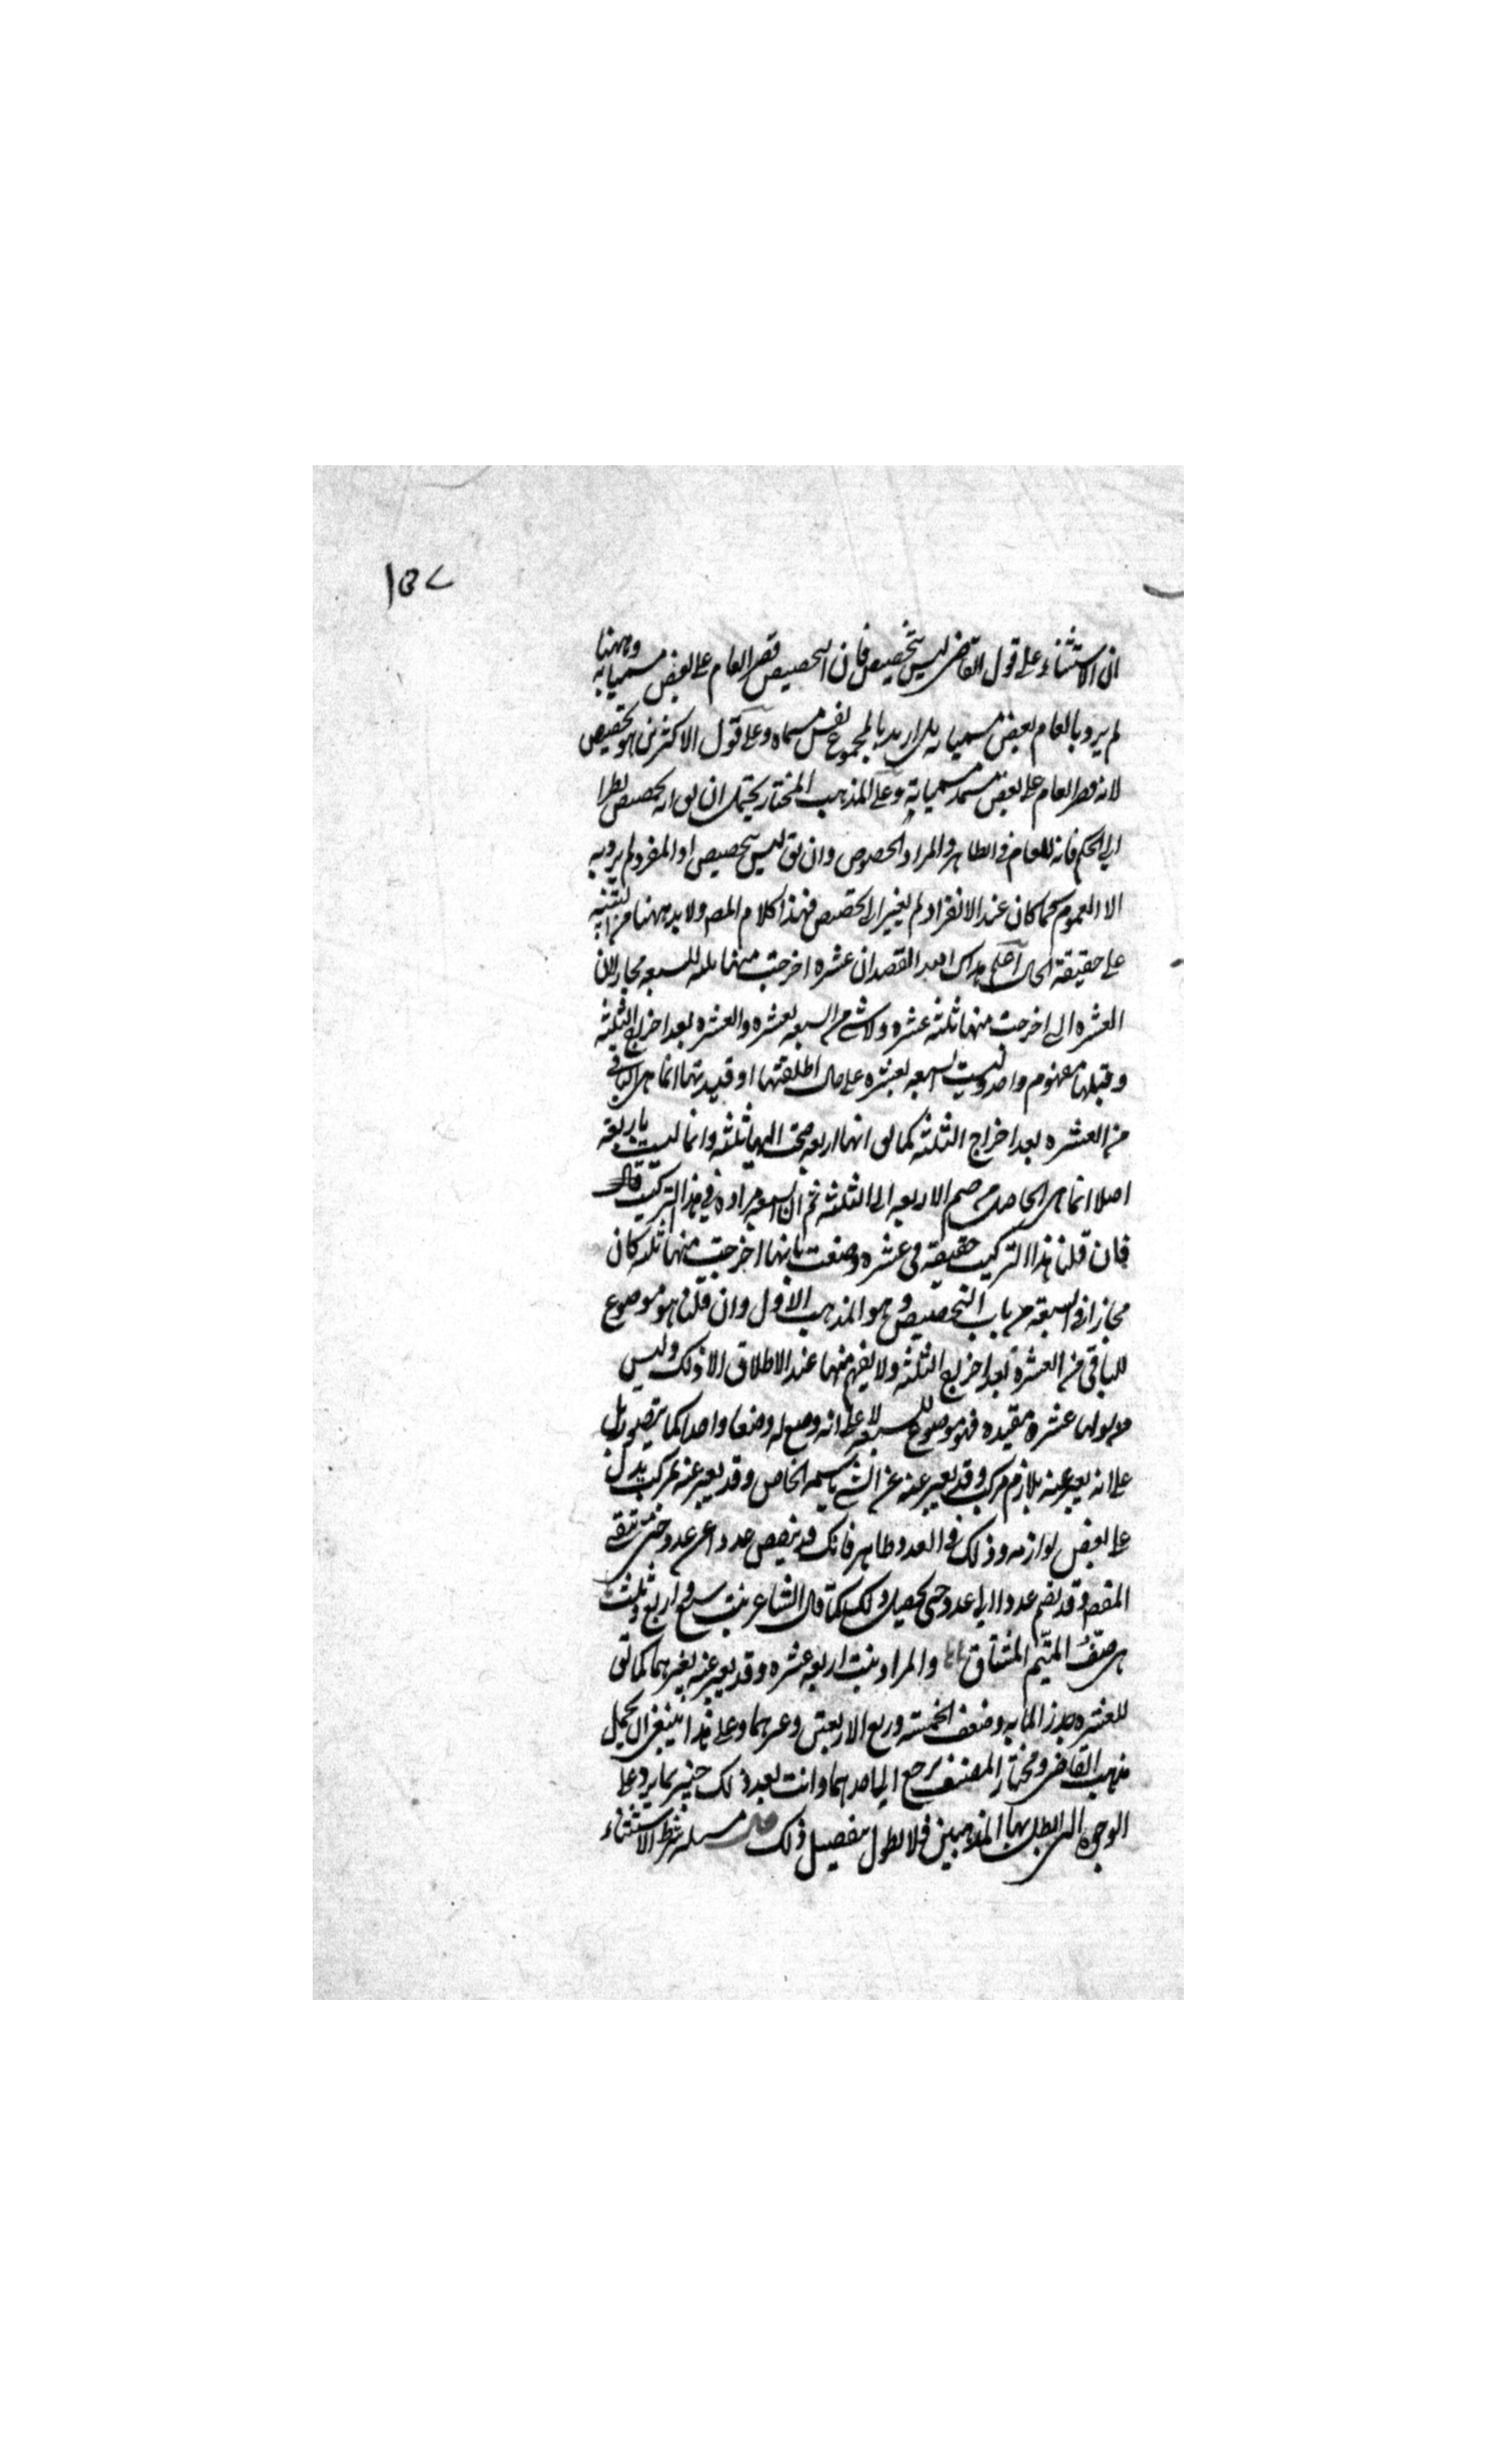 ١٥٧
ان الاستثناء على قول القاضى ليس بتخصيص فان التخصيص قصر العام على بعض مسمياته وههنا
لم يرد بالعام بعض مسمياته بل اريد بالمجموع نفس مسماه وعلى قول الاكثرين هو تخصيص
لانه قصر العام على بعض مسمياته وعلى المذهب المختار يحتمل ان يق انه تخصيص نظرا
الى الحكم فانه للعام فى الظاهر والمراد الخصوص وان يق ليس بتخصيص اذ المفرد لم يرد به
الا العموم كما كان عند الانفراد لم يغير الى تخصيص فهذا كلام المص ولا بد ههنا من التنبيه
على حقيقة الحال ان عشرة اخرجت منها ثلثة للسبعة مجاز لان
العشرة التى اخرجت منها ثلثة عشرة ولا شىء من السبعة بعشرة والعشرة بعد اخراج الثلثة
وقبلها مفهوم واحد وليست السبعة بعشرة على حال اطلقتها او قيدتها انما هى الباقى
من العشرة بعد اخراج الثلثة كما يق انها اربعة ضمت اليها ثلثة وانما ليست باربعة
اصلا انما هى الحاصل من ضم الاربعة الى الثلثة ثم ان السبعة مرادة فى هذا التركيب
فان قلنا هذا التركيب حقيقة فى عشرة وصفت بانها اخرجت منها ثلثة كان
مجازا فى السبعة من باب التخصيص وهو المذهب الاول وان قلنا هو موضوع
للباقى من العشرة بعد اخراج الثلثة ولا يفهم منها عند الاطلاق الا ذلك وليس
عشرة مقيدة فهو موضوع للسبعة لا على انه وضع له وضعا واحدا كما يتصور بل
على انه يعبر عنه بلازم مركب وقد يعبر عن الشىء باسمه الخاص وقد يعبر عنه بمركب يدل
على بعض لوازمه وذلك فى العدد ظاهر فانك قد تنقص عددا عن عدد حتى تبقى
المقص وقد يضم عددا الى عدد حتى يحصل ولك كما قال الشاعر بنت سبع واربع وثلث
هى حتف المتيم المشتاق والمراد بنت اربعة عشرة وقد يعبر عنه بغيرهما كما يق
للعشرة جذر المائة وضعف الخمسة وربع الاربعين وغيرهما وعلى هذا ينبغى ان يحمل
مذهب القاضى ومختار المصنف يرجع الى احدهما وانت بعد ذلك خبير بما يرد على
الوجوه التى ابطل بها المذهبين فلا نطول بتفصيل ذلك قال مسئلة شرط الاستثناء